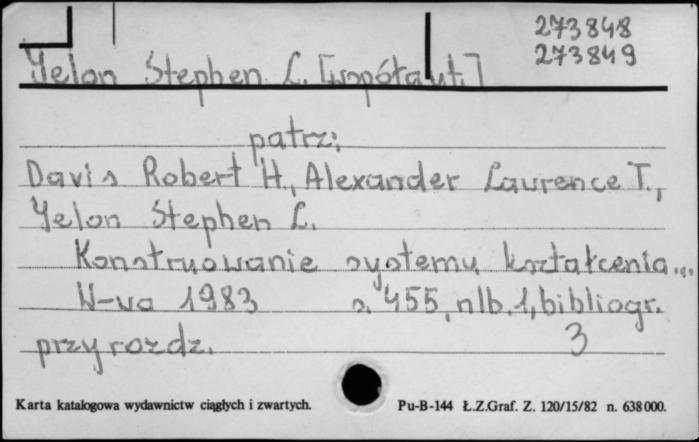 273848
273849
Yelon Stephen L. [współaut.]
patrz:
Davis Robert H., Alexander Laurence T.,
Yelon Stephen L.
Konstruowanie systemu kształcenia...
W-wa 1983 s. 455, nlb. 1, bibliogr.
przy rozdz. 3
Karta katalogowa wydawnictw ciągłych i zwartych. Pu-B-144 Ł.Z.Graf. Z. 120/15/82 n. 638000.